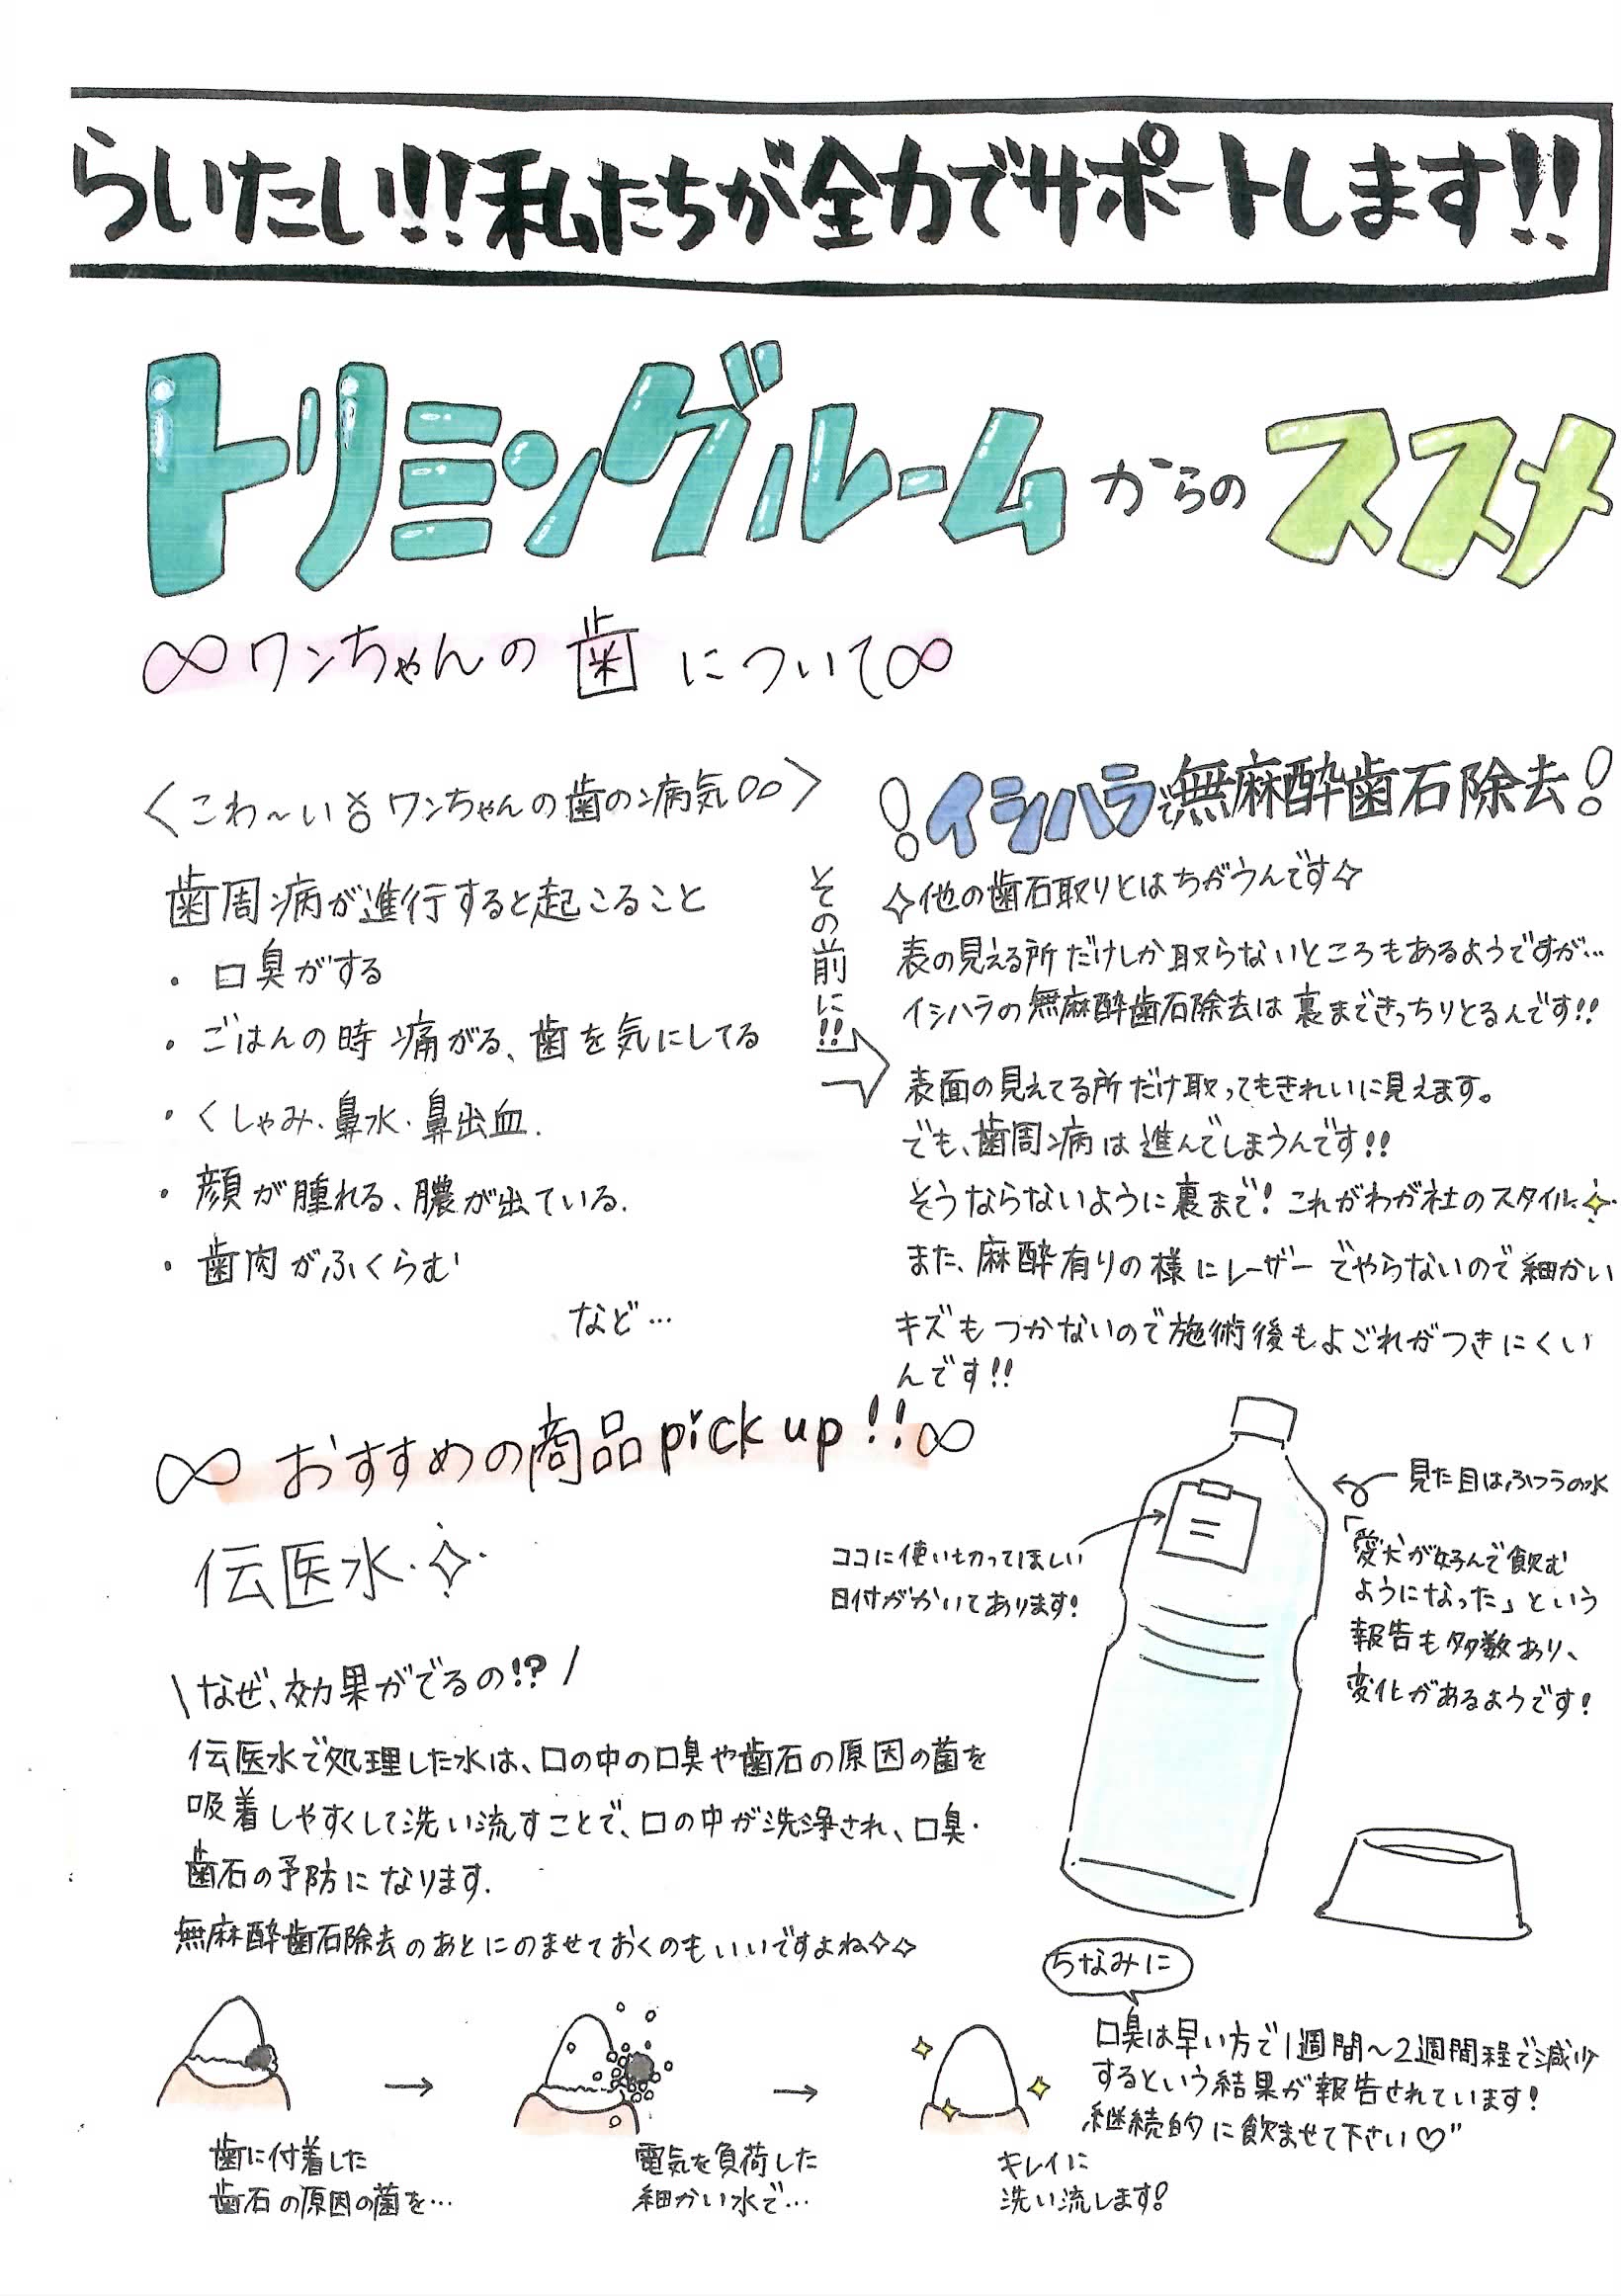 らいたい!!! 私たちが全力でサポートします!!
トリミングルームからのススメ
∞ワンちゃんの歯について∞
〈こわ～いワンちゃんの歯の病気〉
歯周病が進行すると起こること
・口臭がする
・ごはんの時痛がる、歯を気にしてる
・くしゃみ・鼻水・鼻出血.
・顔が腫れる、膿が出ている.
・歯肉がふくらむ
など…
その前に!!
!イシハラで無麻酔歯石除去!
✧他の歯石取りとはちがうんです✧
表の見える所だけしか取らないところもあるようですが…
イシハラの無麻酔歯石除去は裏まできっちりとるんです!!
表面の見えてる所だけ取ってもきれいに見えます。
でも、歯周病は進んでしまうんです!!
そうならないように裏まで!これがわが社のスタイル✧
また、麻酔有りの様にレーザーでやらないので細かい
キズもつかないので施術後もよごれがつきにくい
んです!!
∞おすすめの商品pick up!!∞
伝医水✧
\なぜ、効果がでるの!?/
伝医水で処理した水は、口の中の口臭や歯石の原因の菌を
吸着しやすくして洗い流すことで、口の中が洗浄され、口臭・
歯石の予防になります.
無麻酔歯石除去のあとにのませておくのもいいですよね✧✧
ココに使いきってほしい
日付がかいてあります!
見た目はふつうの水
「愛犬が好んで飲む
ようになった」という
報告も多数あり、
変化があるようです!
歯に付着した
歯石の原因の菌を…
→
電気を負荷した
細かい水で…
→
キレイに
洗い流します!
ちなみに
口臭は早い方で1週間～2週間程で減少
するという結果が報告されています!
継続的に飲ませて下さい♡"